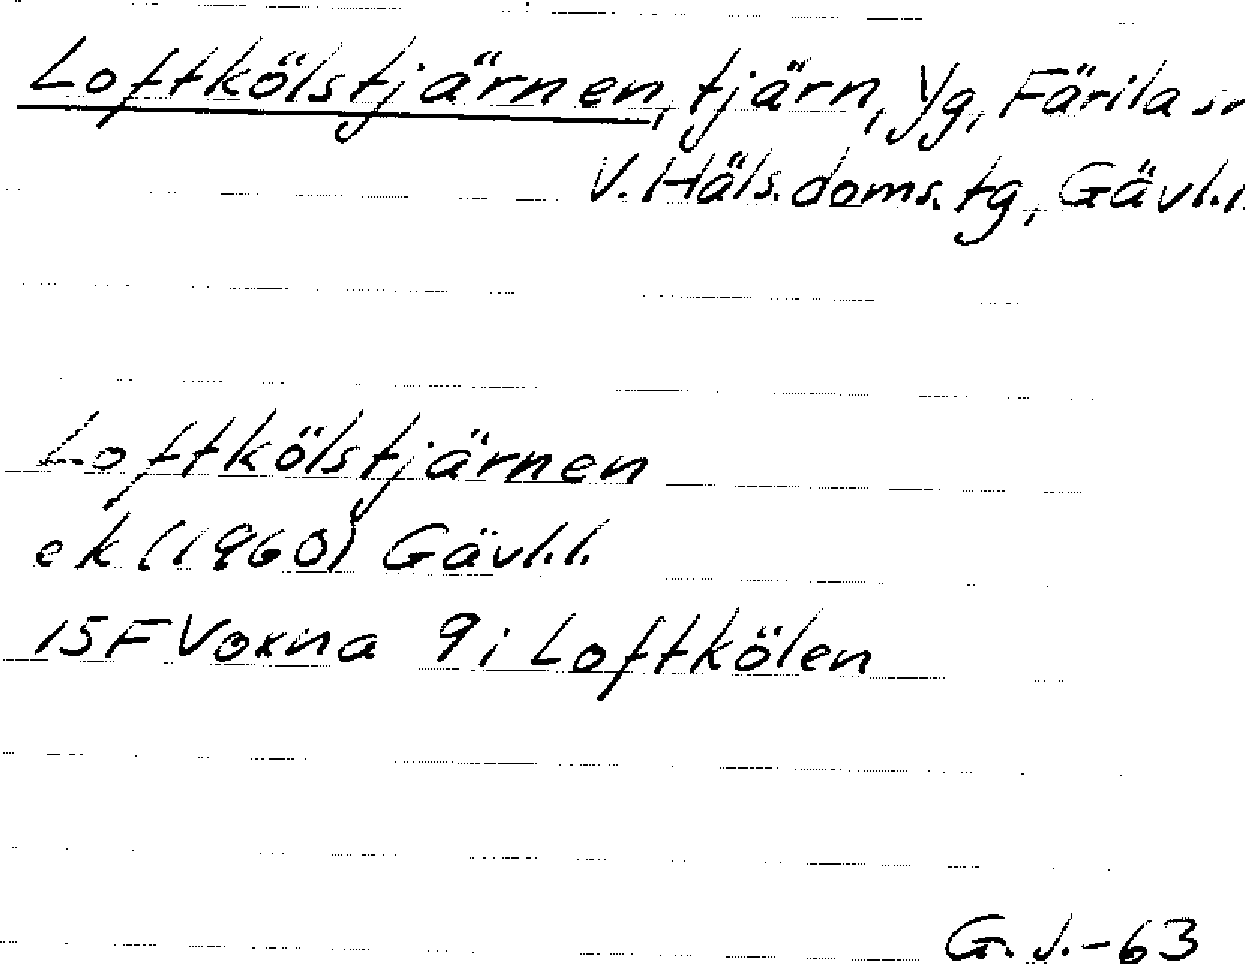 Loftkölstjärnen, tjärn, Yg, Färila sn
V. Häls. doms. tg, Gävl. l.
Loftkölstjärnen
ek (1960) Gävl. l.
15F Voxna 9i Loftkölen
G. J. -63